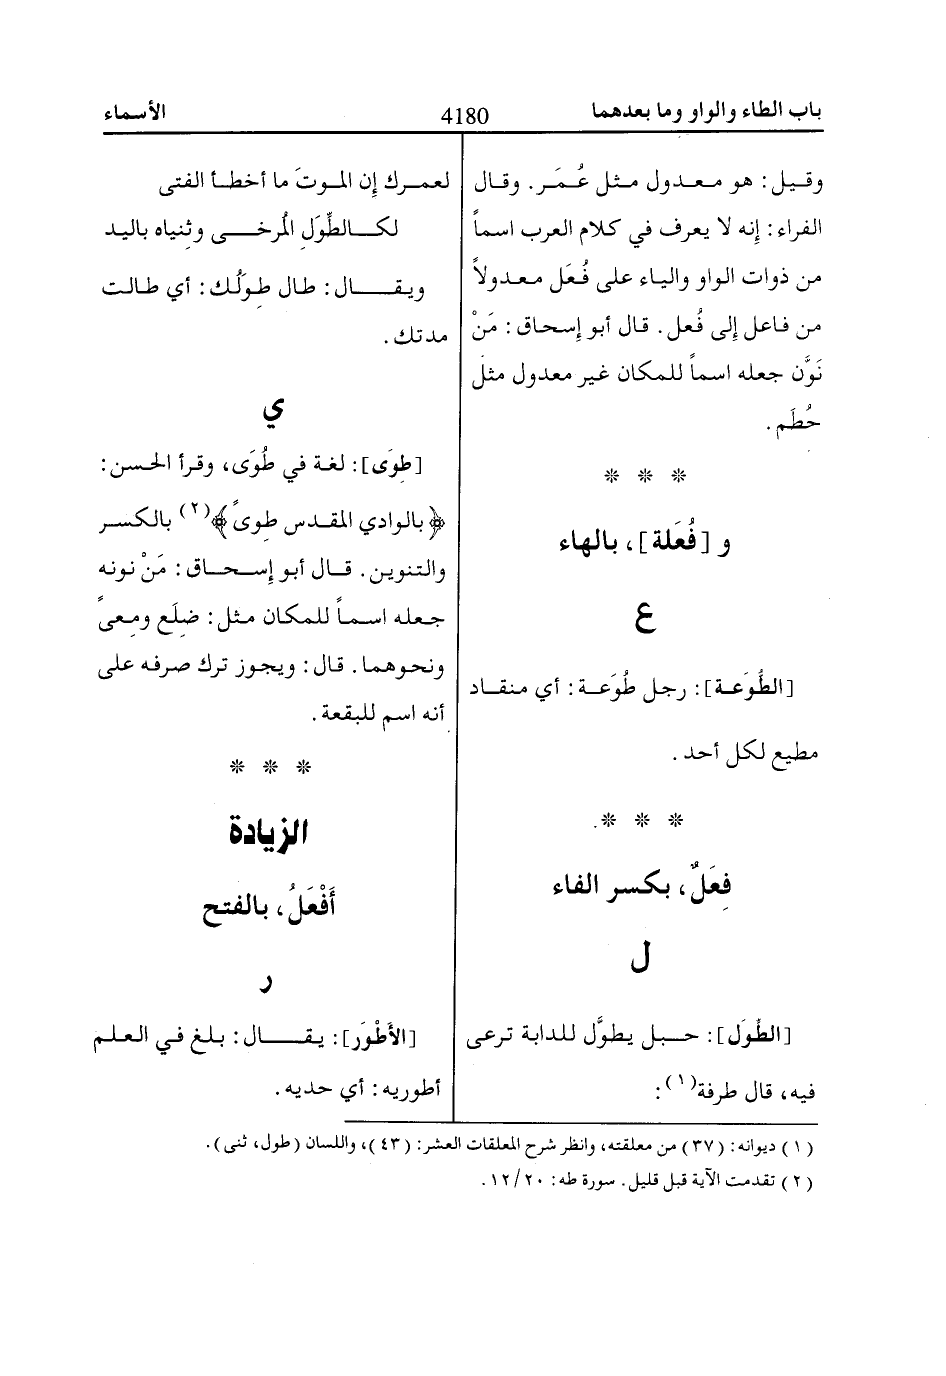 باب الطاء والواو وما بعدهما
4180
الأسماء
وقيل: هو معدول مثل عُمَر. وقال
الفراء: إنه لا يعرف في كلام العرب اسماً
من ذوات الواو والياء على فُعَل معدولاً
من فاعل إلى فُعل. قال أبو إسحاق: مَنْ
نَوَّن جعله اسماً للمكان غير معدول مثل
حُطَم.
* * *
و [فُعَلة]، بالهاء
ع
[الطُّوَعة]: رجل طُوَعة: أي منقاد
مطيع لكل أحد.
* * *
فِعَلٌ، بكسر الفاء
ل
[الطِّوَل]: حبل يطوَّل للدابة ترعى
فيه، قال طرفة(١):
لعمرك إن الموتَ ما أخطأ الفتى
لكالطِّوَلِ المُرخى وثنياه باليد
ويقال: طال طِوَلُك: أي طالت
مدتك.
ي
[طِوَى]: لغة في طُوَى، وقرأ الحسن:
﴿بالوادي المقدس طِوىً﴾(٢) بالكسر
والتنوين. قال أبو إسحاق: مَنْ نونه
جعله اسماً للمكان مثل: ضِلَع ومِعىً
ونحوهما. قال: ويجوز ترك صرفه على
أنه اسم للبقعة.
* * *
الزيادة
أَفْعَلُ، بالفتح
ر
[الأَطْوَر]: يقال: بلغ في العلم
أطوريه: أي حديه.
(١) ديوانه: (٣٧) من معلقته، وانظر شرح المعلقات العشر: (٤٣)، واللسان (طول، ثنى).
(٢) تقدمت الآية قبل قليل. سورة طه: ١٢/٢٠.